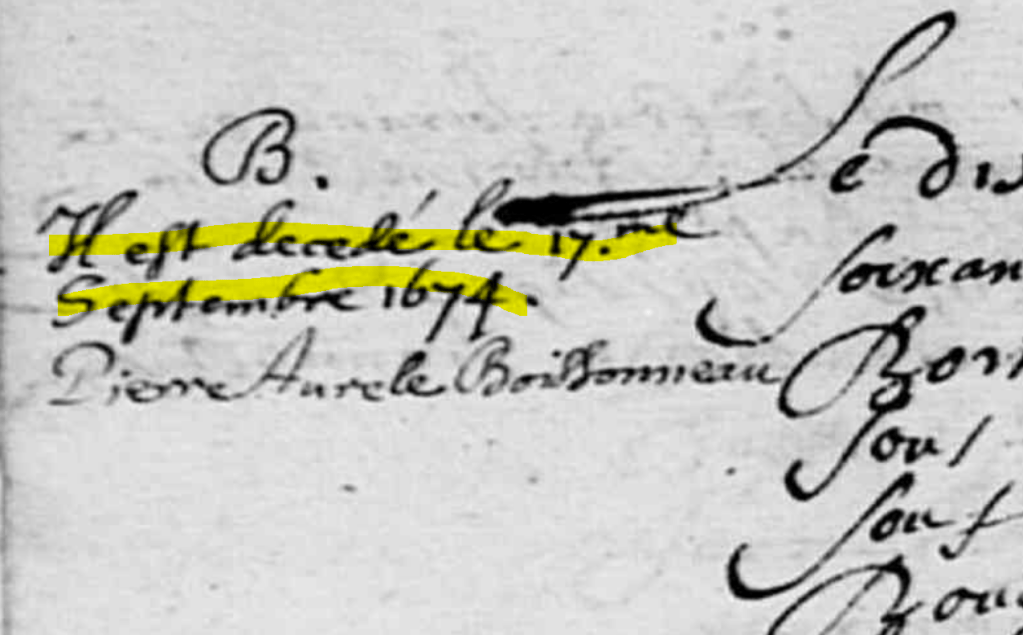 B.
Il est decedé le 17.me
Septembre 1674.
Pierre Aurele Boissonneau
Le dix
soixan
sous